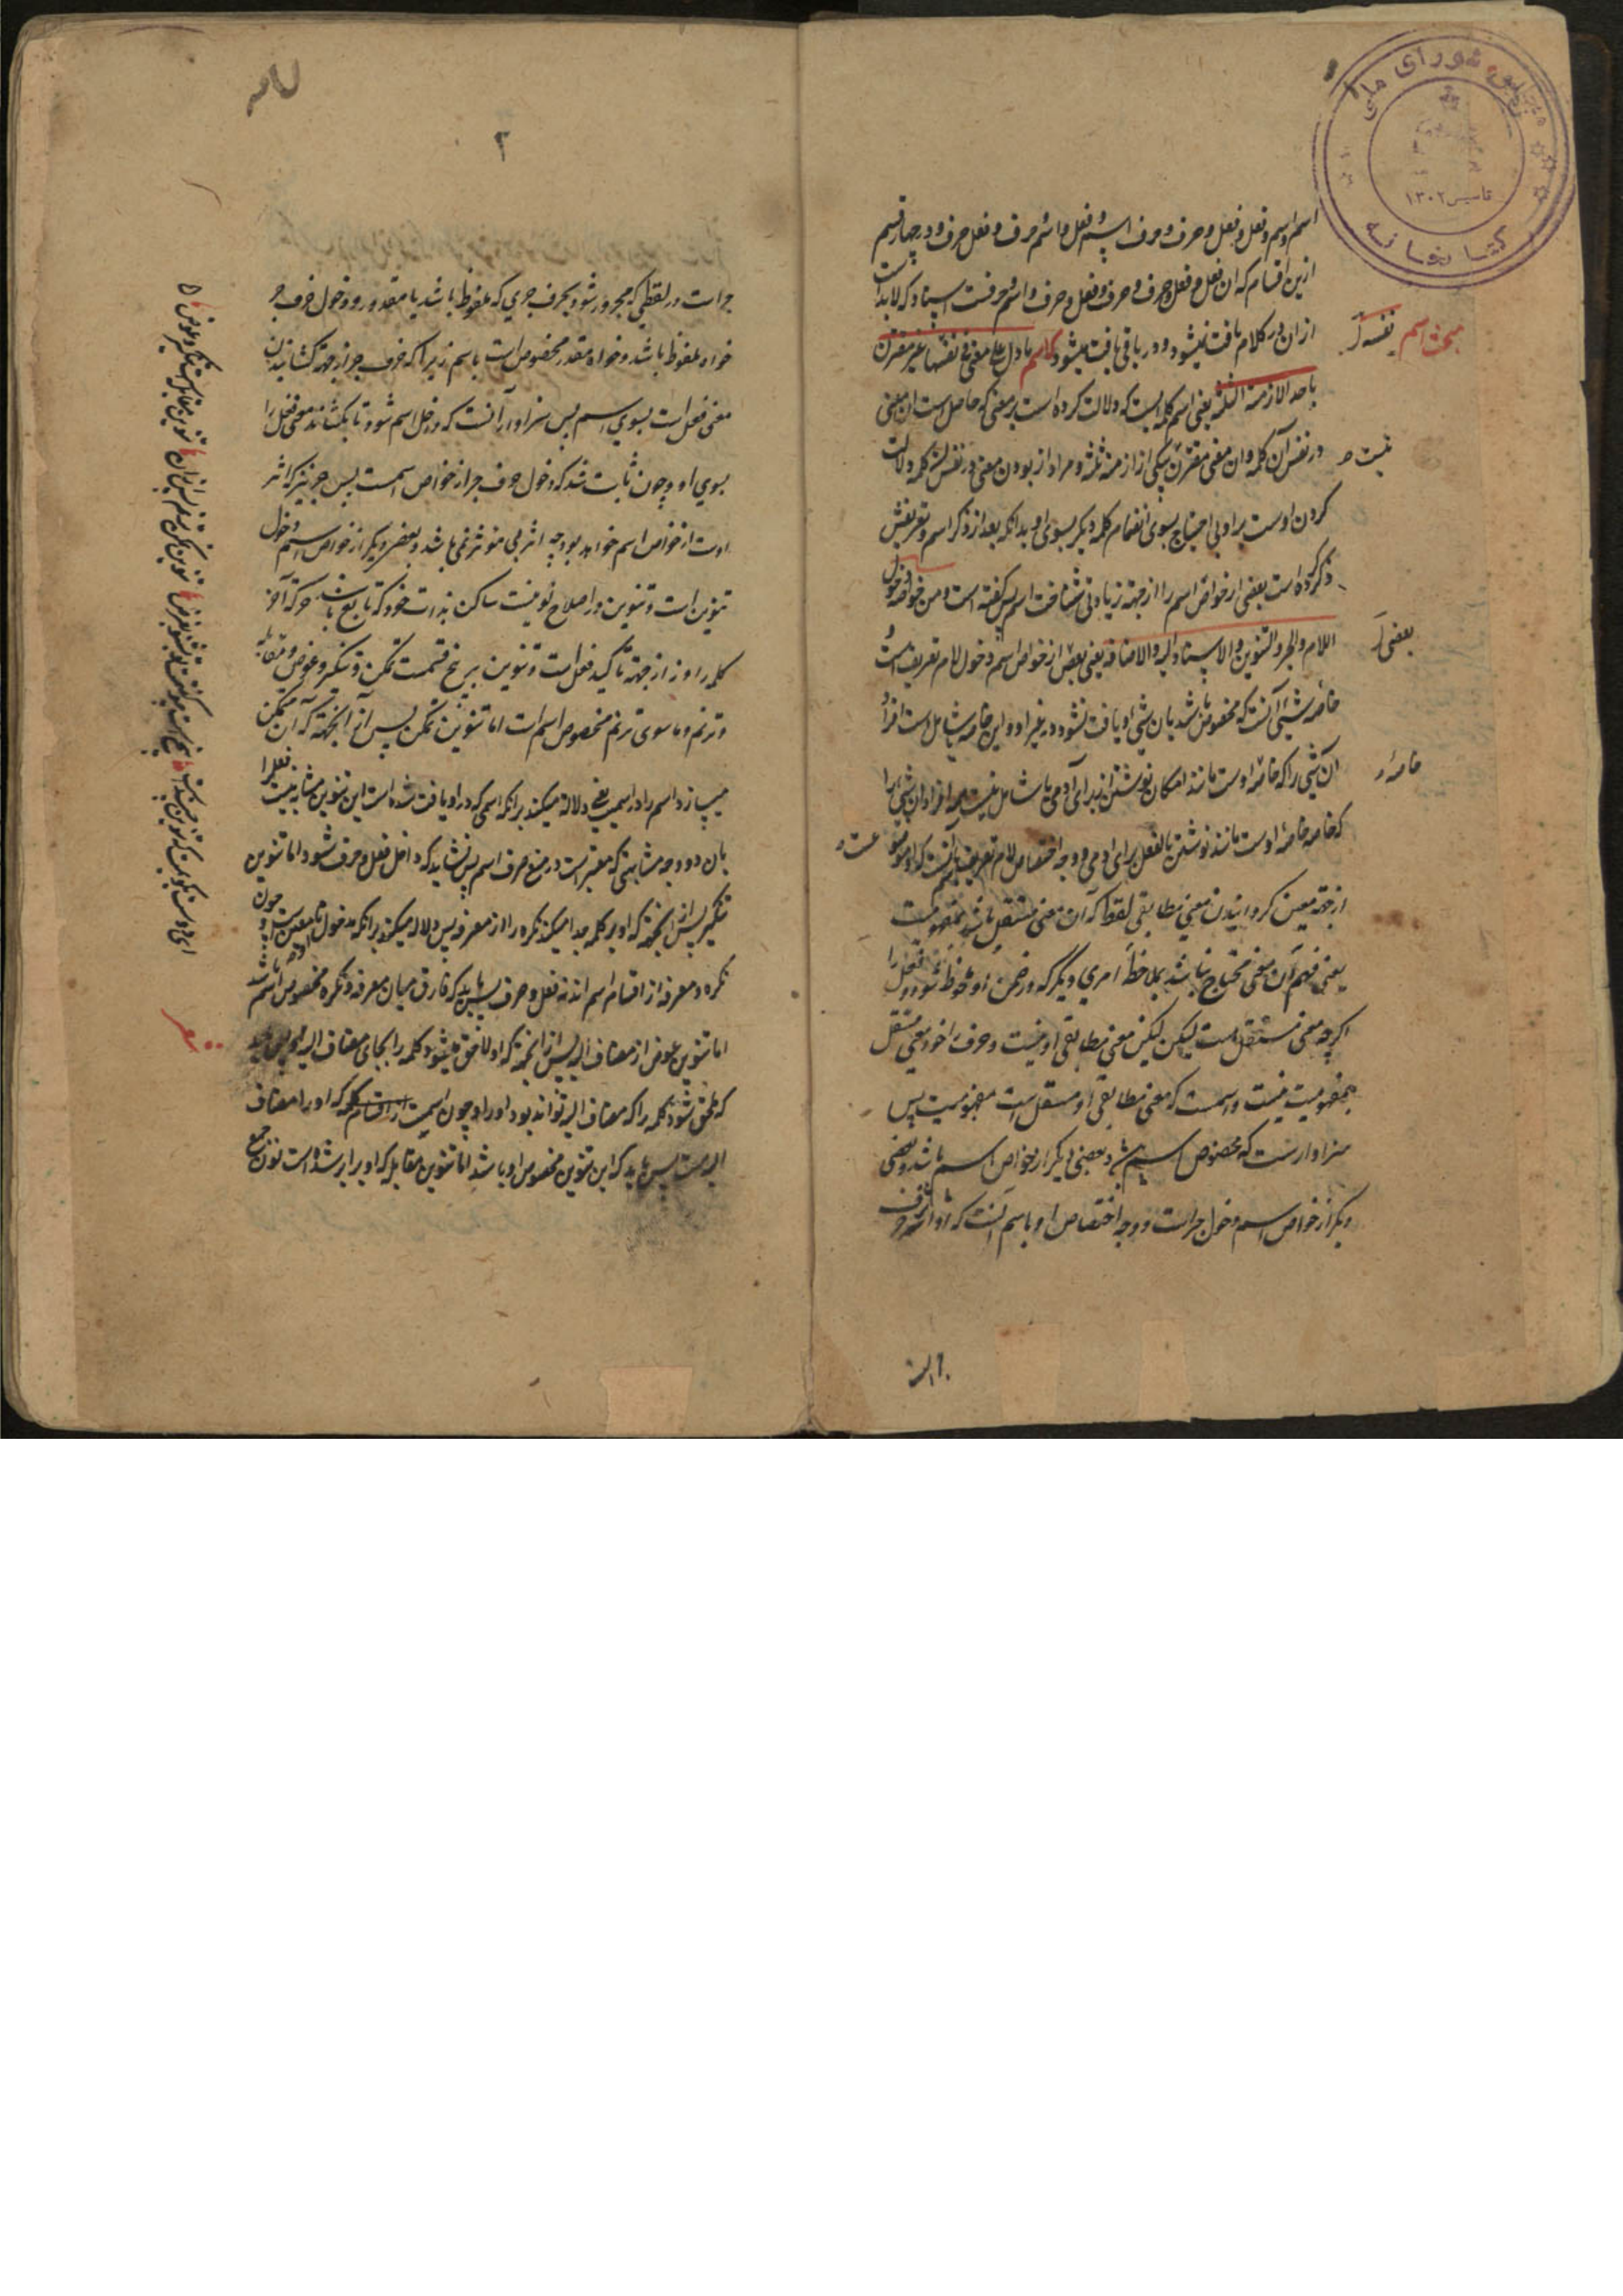 کتابخانه مجلس شورای ملی
تاسیس ۱۳۰۲
اسم و اسم و فعل و فعل و حرف و حرف و اسم و فعل و اسم و حرف و فعل و حرف و در چهار قسم
ازین اقسام که آن فعل و فعل و حرف و حرف و فعل و حرف و اسم و حرفست اسناد که لابد است
از آن در کلام یافت نمیشود و در باقی یافت میشود الاسم ما دل علی معنی فی نفسها غیر مقترن
مبحث اسم نفسه
باحد الازمنة الثلثة یعنی اسم کلمه ایست که دلالت کرده است بر معنی که حاصل است آن معنی
در نفس آن کلمه و آن معنی مقترن بیکی از ازمنه ثلثه و مراد از بودن معنی در نفس کلمه دلالت
نیست
کردن اوست بر او بی احتیاج بسوی انضمام کلمه دیگر بسوی او بدانکه بعد از ذکر اسم و تعریفش
ذکر کرده است بعضی از خواص اسم را از جهة زیادتی شناخت اسم پس گفته است و من خواصه دخول
اللام و الجر و التنوین و الاسناد الیه و الاضافة یعنی بعض از خواص اسم دخول لام تعریف است
بعضی
خاصه شیئی آنست که مخصوص باشد بان شیی و یافت نشود در غیر او و این خاصه یا شامل است افراد
آن شیی را که خاصه اوست مانند امکان نوشتن از برای آدمی یا شامل نیست همه افراد آن شیی را
خاصه
که خاصه خاصه اوست مانند نوشتن بالفعل برای آدمی و وجه اختصاص لام تعریف باسم آنست که او موضوع
عست
از جهة معین کردانیدن معنی مطابقی لفظ که آن معنی مستقل باشد بمفهومیت
یعنی فهم آن معنی محتاج نباشد بملاحظه امری دیگر که در ضمن او ملحوظ شود و فعل را
اگرچه معنی مستقل است لیکن معنی مطابقی او نیست و حرف را خود معنی مستقل
بمفهومیت نیست و اسمست که معنی مطابقی او مستقل است بمفهومیت پس
سزاوارست که مخصوص اسم باشد و بعضی دیگر از خواص اسم باشد و بعضی
دیگر از خواص اسم دخول جر است و وجه اختصاص او باسم آنست که او اثر حرف
۲
جر است در لفظی که مجرور شود بحرف جری که ملفوظ باشد یا مقدر و دخول حرف جر
خواه ملفوظ باشد و خواه مقدر مخصوص است باسم زیرا که حرف جر از جهة کشانیدن
معنی فعل است بسوی اسم پس سزاوار آنست که داخل اسم شود تا بکشاند معنی فعل را
بسوی او و چون ثابت شد که دخول حرف جر از خواص اسمست پس جر نیز که اثر
اوست از خواص اسم خواهد بود چه اثر بی مؤثر نمی باشد و بعضی دیگر از خواص اسم دخول
تنوین است و تنوین در اصلاح نونیست ساکن بذات خود که تابع باشد حرکة آخر
کلمه را و نه از جهة تاکید فعل است و تنوین بر پنج قسمست تمکن و تنکیر و عوض و مقابله
و ترنم و ما سوی ترنم مخصوص اسم است اما تنوین تمکن پس از آنجهة که آن متمکن
میسازد اسم را در اسمیت یعنی دلالة میکند برانکه اسمی که در او یافت شده است این تنوین مشابه نیست فعل را
بان دو وجه مشابهتی که معتبر است در منع صرف اسم پس نشاید که داخل فعل و حرف شود اما تنوین
تنکیر پس از آنجهة که او بر کلمه جدا میکند نکره را از معرفه پس دلالة میکند برانکه مدخول نامعین است و چون
نکره و معرفه از اقسام اسم اند نه فعل و حرف پس باید که فارق میان معرفه و نکره مخصوص اسم باشد
اما تنوین عوض از مضاف الیه پس از آنجهة که او لاحق میشود کلمه را بجای مضاف الیه پس باید
که ملحق شود کلمه را که مضاف الیه تواند بود او را و چون اسمیت از اقسام کلمه که او را مضاف
الیه هست پس باید که این تنوین مخصوص او باشد اما تنوین مقابله که او برابر شده است نون جمع
شعر